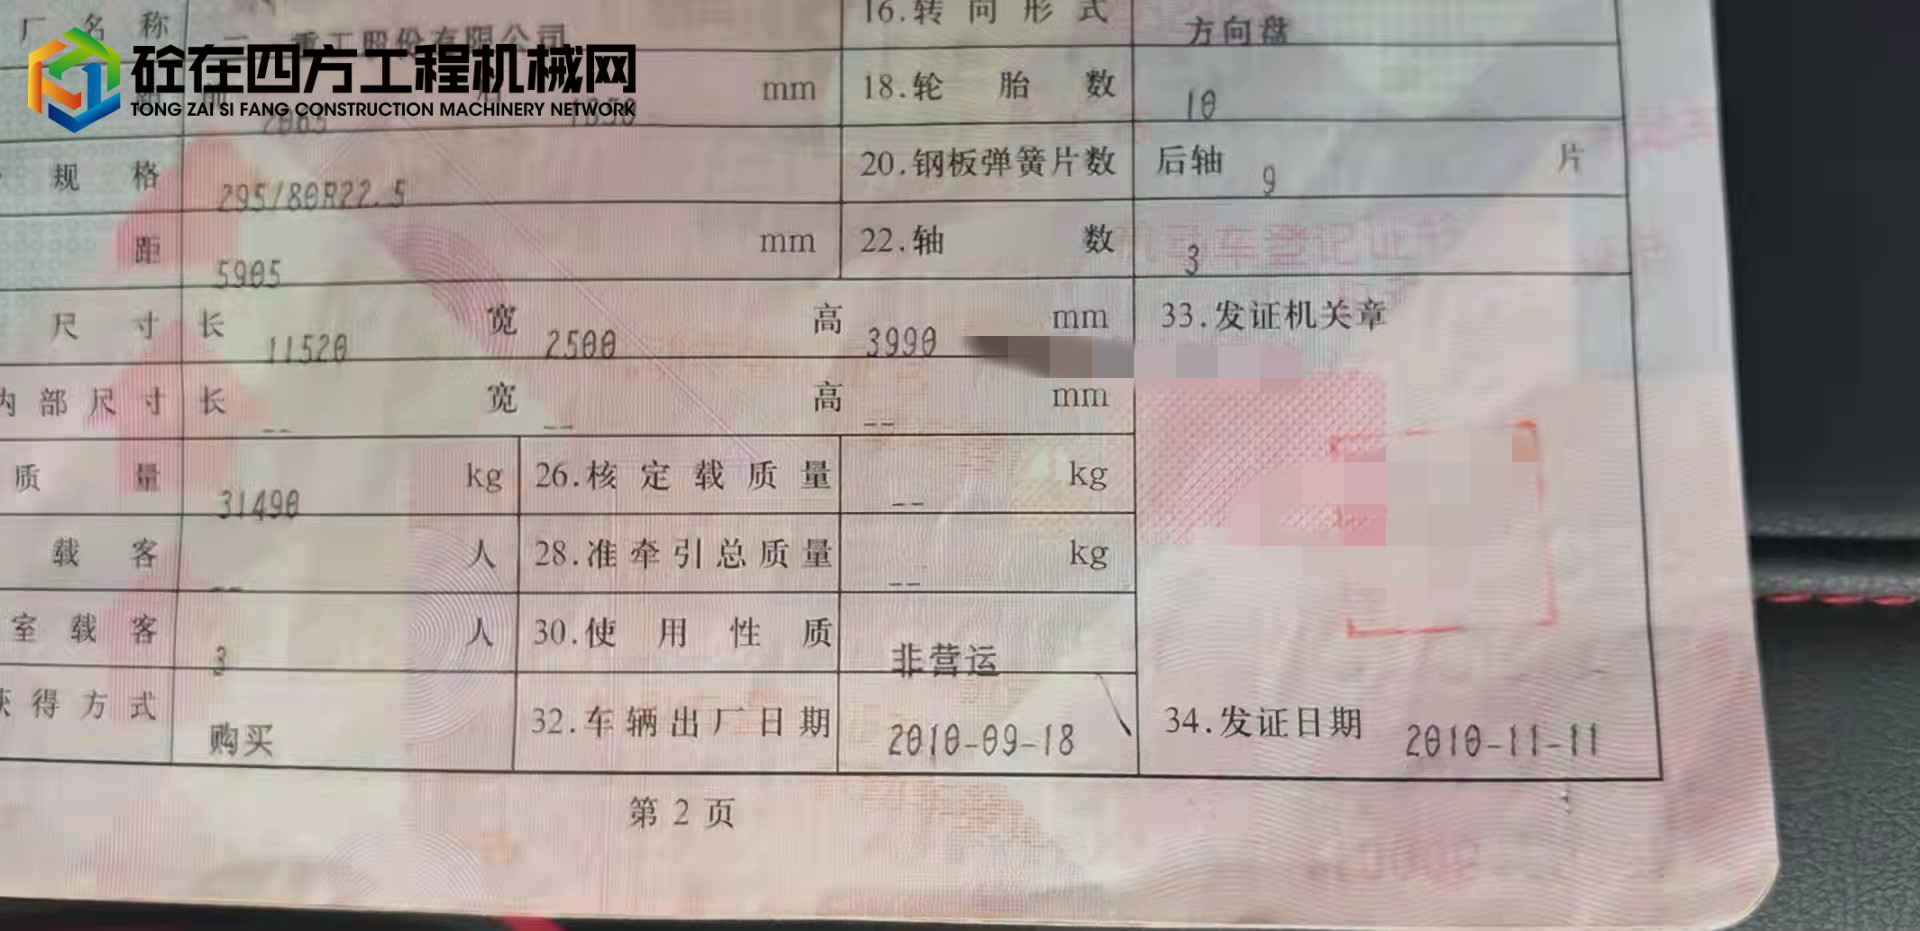 厂名称 重工股份有限公司 16.转向形式 方向盘
砼在四方工程机械网
TONG ZAI SI FANG CONSTRUCTION MACHINERY NETWORK
mm 18.轮胎数 10
规格 295/80R22.5 20.钢板弹簧片数 后轴 9 片
距 5905 mm 22.轴数 3
机动车登记证书
尺寸 长 11520 宽 2500 高 3990 mm 33.发证机关章
内部尺寸 长 -- 宽 -- 高 -- mm
质量 31490 kg 26.核定载质量 -- kg
载客 -- 人 28.准牵引总质量 -- kg
室载客 3 人 30.使用性质 非营运
获得方式 购买 32.车辆出厂日期 2010-09-18 34.发证日期 2010-11-11
第2页